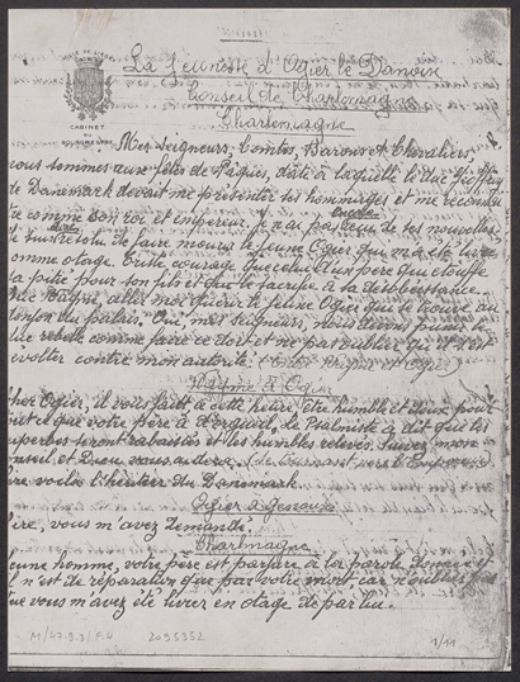 La Jeunesse d'Ogier le Danois
Conseil de Charlemagne
CABINET
DU
Charlemagne
Mes Seigneurs, Comtes, Barons et Chevaliers,
nous sommes aux fêtes de Pâques, date à laquelle le duc Geoffroy
de Danemark devait me présenter ses hommages et me reconnai
tre comme son roi et empereur, je n'ai pas encore reçu de ses nouvelles
résolu de faire mourir le jeune Ogier qui m'a été livré
comme otage. Triste courage que celui d'un père qui étouffe
sa pitié pour son fils et qui le sacrifie à sa désobéissance.
allez moi quérir le jeune Ogier qui se trouve au
donjon du palais. Oui, mes seigneurs, nous devons punir le
duc rebelle comme faire ce doit et ne pas oublier qu'il s'est
évolter contre mon autorité. (Entre Nayme et Ogier)
Nayme à Ogier
cher Ogier, il vous faut à cette heure être humble et doux pour
tout ce que votre père à d'orgueil, le Psalmiste à dit que les
uperbes seront rabaissés et les humbles relevés. Suivez mon
onseil et Dieu vous aidera. (se tournant vers l'Empereur)
ire voilà l'héritier du Danemark.
Ogier à genoux
ire, vous m'avez demandé.
Charlmagne
jeune homme, votre père est parjure à la parole donnée et
il n'est de réparation que par votre mort car n'oubliez pas
que vous m'avez été livrer en otage de par lui.
M/47.9.3/F.4 2095352 1/11